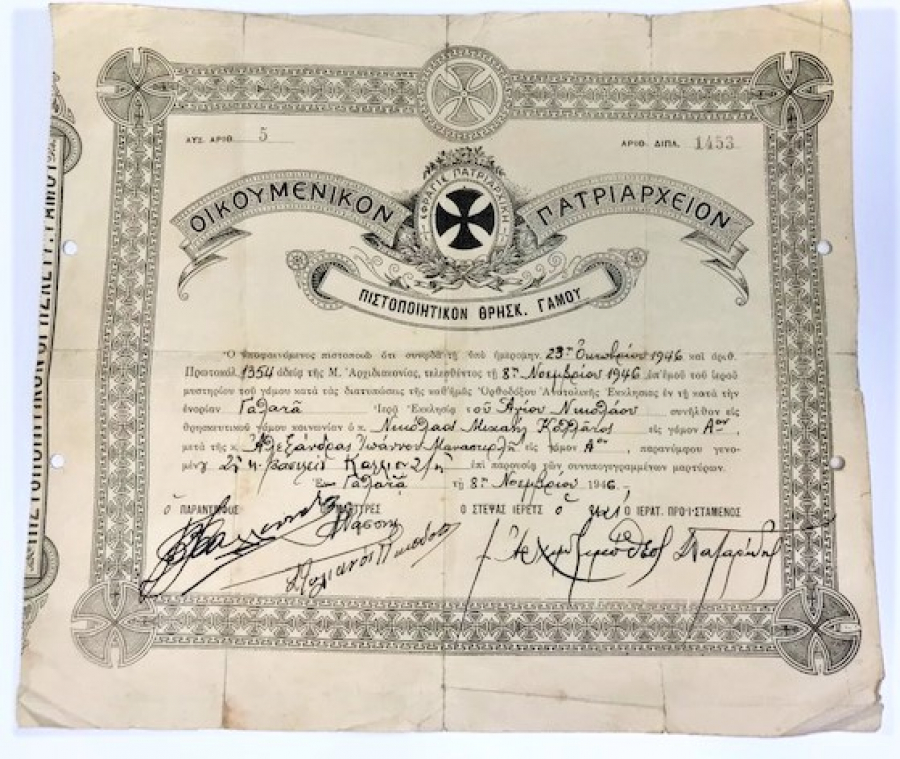 ΑΥΞ. ΑΡΙΘ. 5
ΑΡΙΘ. ΔΙΠΛ. 1453
ΟΙΚΟΥΜΕΝΙΚΟΝ ΠΑΤΡΙΑΡΧΕΙΟΝ
ΣΦΡΑΓΙΣ ΠΑΤΡΙΑΡΧΙΚΗ
ΠΙΣΤΟΠΟΙΗΤΙΚΟΝ ΘΡΗΣΚ. ΓΑΜΟΥ
Ὁ ὑποφαινόμενος πιστοποιῶ ὅτι συνῳδὰ τῇ ὑπὸ ἡμερομην. 23ῃ Ὀκτωβρίου 1946 καὶ ἀριθ.
Πρωτοκόλ. 1354 ἀδείᾳ τῆς Μ. Ἀρχιδιακονίας, τελεσθέντος τῇ 8ῃ Νοεμβρίου 1946 ὑπ' ἐμοῦ τοῦ ἱεροῦ
μυστηρίου τοῦ γάμου κατὰ τὰς διατυπώσεις τῆς καθ' ἡμᾶς Ὀρθοδόξου Ἀνατολικῆς Ἐκκλησίας ἐν τῇ κατὰ τὴν
ἐνορίαν Γαλατᾶ Ἱερᾷ Ἐκκλησίᾳ τοῦ Ἁγίου Νικολάου συνῆλθον εἰς
θρησκευτικοῦ γάμου κοινωνίαν ὁ κ. Νικόλαος Μιχαὴλ εἰς γάμον Αον,
μετὰ τῆς κ. Ἀλεξάνδρας Ἰωάννου εἰς γάμον Αον, παρανύμφου γενο-
μένου ἐπὶ παρουσίᾳ τῶν συνυπογεγραμμένων μαρτύρων.
Ἐν Γαλατᾷ τῇ 8ῃ Νοεμβρίου 1946.
ὁ ΠΑΡΑΝΥΜΦΟΣ ΟΙ ΜΑΡΤΥΡΕΣ Ο ΣΤΕΨΑΣ ΙΕΡΕΥΣ ὁ καὶ ὁ ΙΕΡΑΤ. ΠΡΟ·Ι·ΣΤΑΜΕΝΟΣ